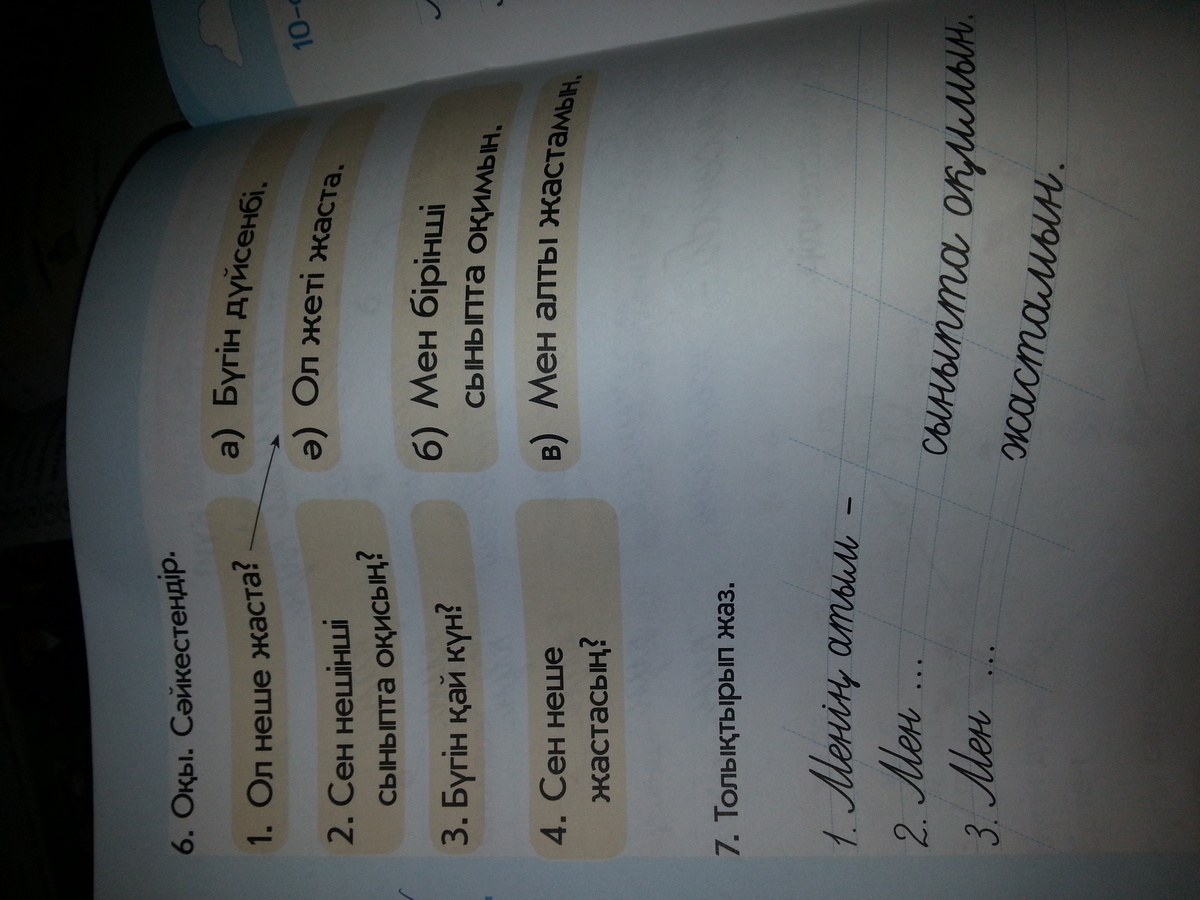 10-
6. Оқы. Сәйкестендір.
1. Ол неше жаста?
2. Сен нешінші
сыныпта оқисың?
3. Бүгін қай күн?
4. Сен неше
жастасың?
а) Бүгін дүйсенбі.
ә) Ол жеті жаста.
б) Мен бірінші
сыныпта оқимын.
в) Мен алты жастамын.
7. Толықтырып жаз.
1. Менің атым –
2. Мен ... сыныпта оқимын.
3. Мен ... жастамын.